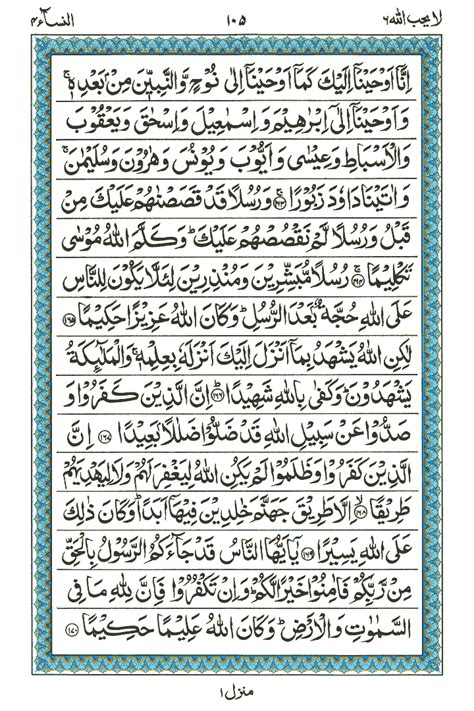 لا یحب الله ۶
۱۰۵
النسآء ۴
اِنَّاۤ اَوْحَیْنَاۤ اِلَیْكَ كَمَاۤ اَوْحَیْنَاۤ اِلٰی نُوْحٍ وَّالنَّبِیّٖنَ مِنْۢ بَعْدِهٖ ۚ
وَ اَوْحَیْنَاۤ اِلٰۤی اِبْرٰهِیْمَ وَ اِسْمٰعِیْلَ وَ اِسْحٰقَ وَ یَعْقُوْبَ
وَ الْاَسْبَاطِ وَ عِیْسٰی وَ اَیُّوْبَ وَ یُوْنُسَ وَ هٰرُوْنَ وَ سُلَیْمٰنَ ۚ
وَ اٰتَیْنَا دَاوٗدَ زَبُوْرًا ﴿۱۶۳﴾ وَ رُسُلًا قَدْ قَصَصْنٰهُمْ عَلَیْكَ مِنْ
قَبْلُ وَ رُسُلًا لَّمْ نَقْصُصْهُمْ عَلَیْكَ ؕ وَ كَلَّمَ اللّٰهُ مُوْسٰی
تَكْلِیْمًا ﴿۱۶۴﴾ رُسُلًا مُّبَشِّرِیْنَ وَ مُنْذِرِیْنَ لِئَلَّا یَكُوْنَ لِلنَّاسِ
عَلَی اللّٰهِ حُجَّةٌۢ بَعْدَ الرُّسُلِ ؕ وَ كَانَ اللّٰهُ عَزِیْزًا حَكِیْمًا ﴿۱۶۵﴾
لٰكِنِ اللّٰهُ یَشْهَدُ بِمَاۤ اَنْزَلَ اِلَیْكَ اَنْزَلَهٗ بِعِلْمِهٖ ۚ وَ الْمَلٰٓئِكَةُ
یَشْهَدُوْنَ ؕ وَ كَفٰی بِاللّٰهِ شَهِیْدًا ﴿۱۶۶﴾ اِنَّ الَّذِیْنَ كَفَرُوْا وَ
صَدُّوْا عَنْ سَبِیْلِ اللّٰهِ قَدْ ضَلُّوْا ضَلٰلًۢا بَعِیْدًا ﴿۱۶۷﴾ اِنَّ
الَّذِیْنَ كَفَرُوْا وَ ظَلَمُوْا لَمْ یَكُنِ اللّٰهُ لِیَغْفِرَ لَهُمْ وَ لَا لِیَهْدِیَهُمْ
طَرِیْقًا ﴿۱۶۸﴾ اِلَّا طَرِیْقَ جَهَنَّمَ خٰلِدِیْنَ فِیْهَاۤ اَبَدًا ؕ وَ كَانَ ذٰلِكَ
عَلَی اللّٰهِ یَسِیْرًا ﴿۱۶۹﴾ یٰۤاَیُّهَا النَّاسُ قَدْ جَآءَكُمُ الرَّسُوْلُ بِالْحَقِّ
مِنْ رَّبِّكُمْ فَاٰمِنُوْا خَیْرًا لَّكُمْ ؕ وَ اِنْ تَكْفُرُوْا فَاِنَّ لِلّٰهِ مَا فِی
السَّمٰوٰتِ وَ الْاَرْضِ ؕ وَ كَانَ اللّٰهُ عَلِیْمًا حَكِیْمًا ﴿۱۷۰﴾
منزل ۱